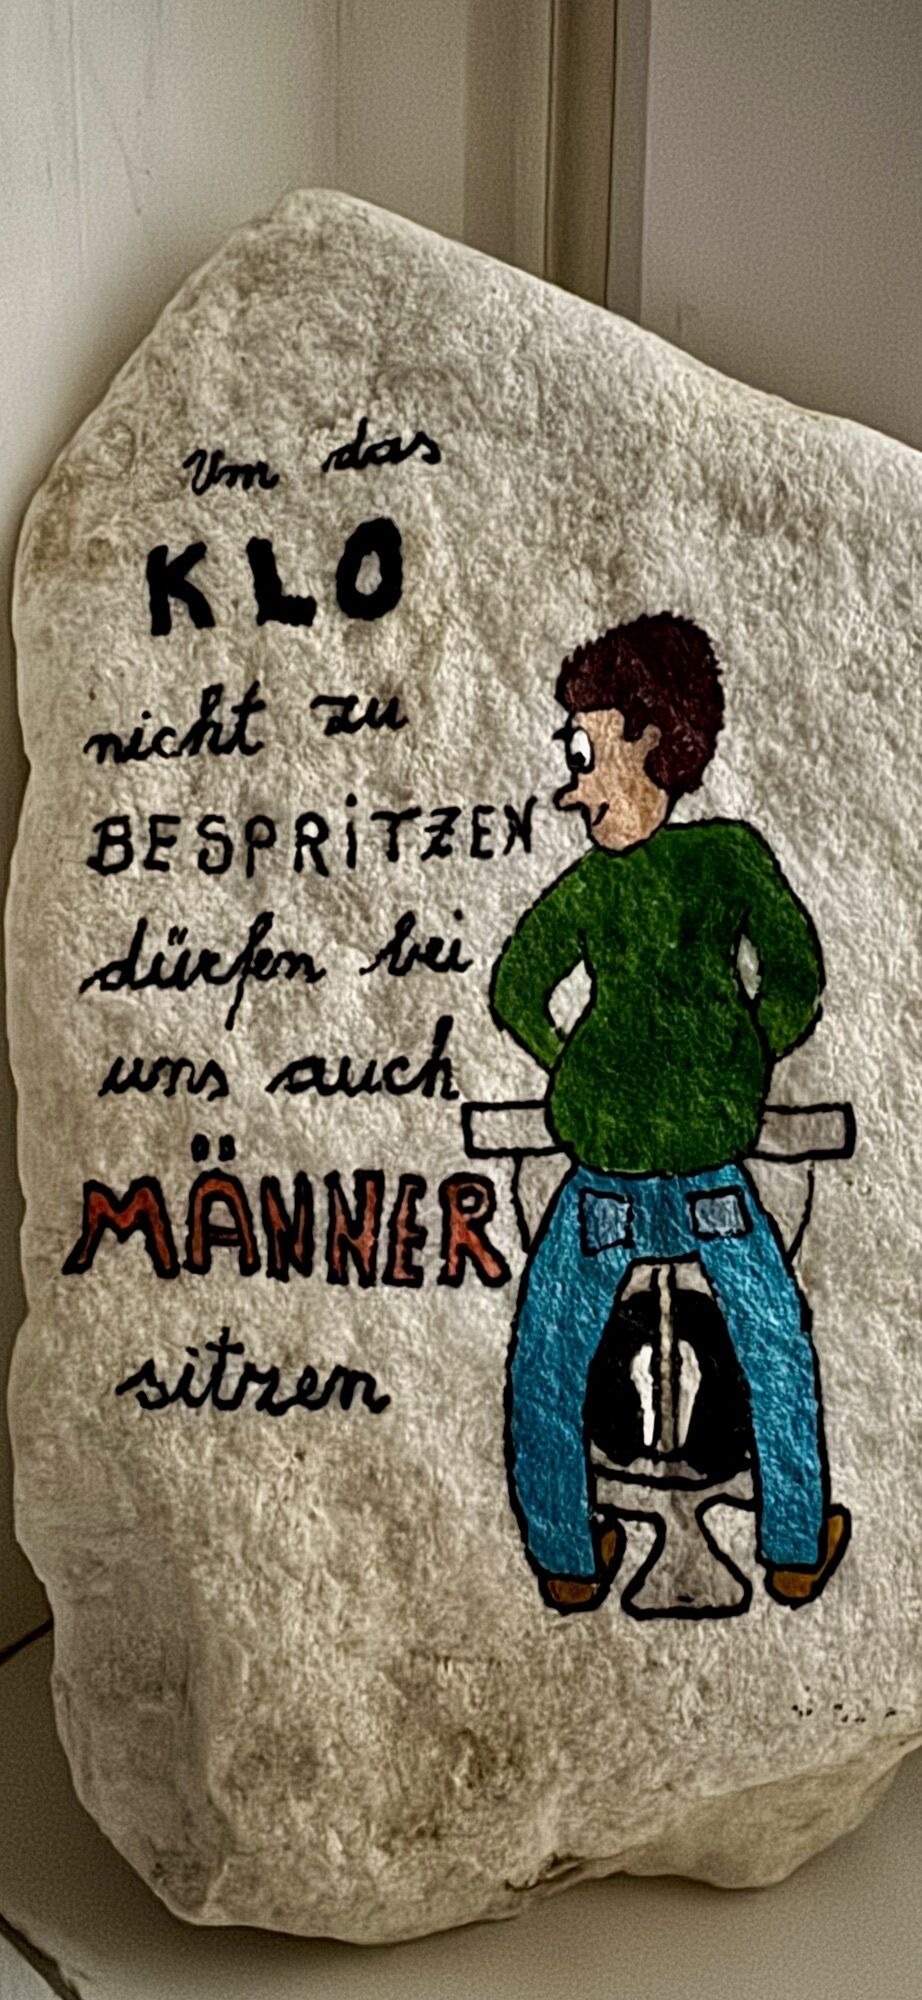 Um das
KLO
nicht zu
BESPRiTZEN
dürfen bei
uns auch
MÄNNER
sitzen